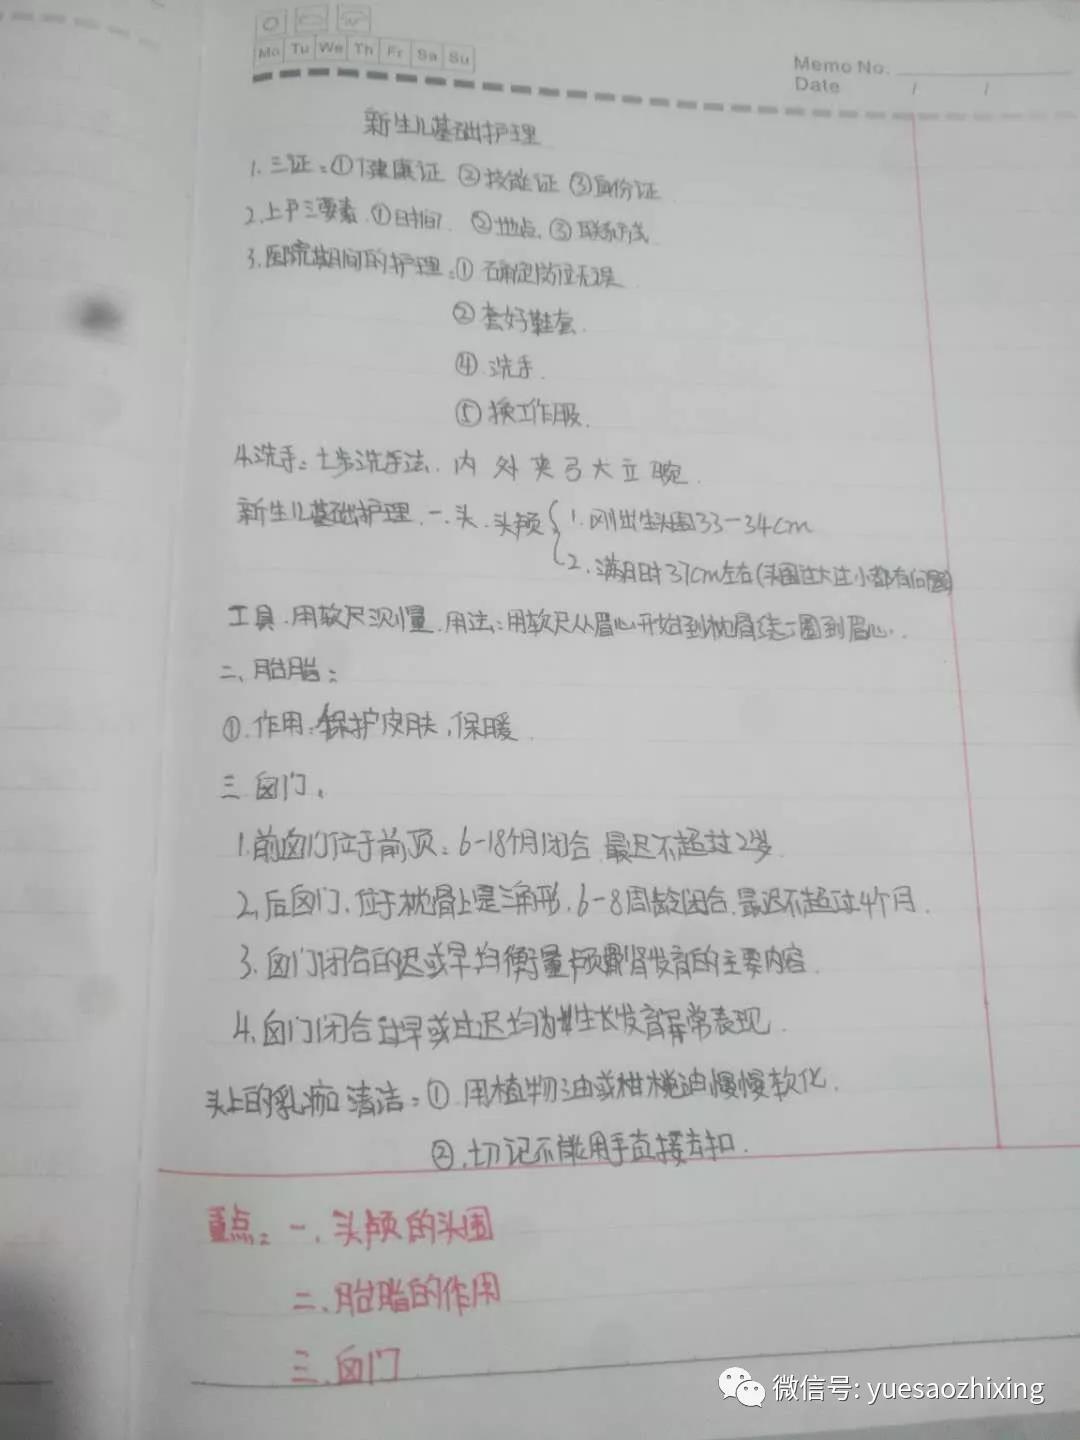 Mo Tu We Th Fr Sa Su
Memo No.
Date / /
新生儿基础护理
1.三证:①健康证 ②技能证 ③身份证
2.上户三要素.①时间.②地点.③联系方式
3.医院期间的护理:①确定岗位无误
②套好鞋套.
④.洗手.
⑤换工作服.
4.洗手:七步洗手法.内外夹弓大立腕.
新生儿基础护理.一.头.头颅 1.刚出生头围33-34cm
2.满月时37cm左右(头围过大过小都有问题)
工具.用软尺测量.用法:用软尺从眉心开始到枕骨绕一圈到眉心.
二、胎脂:
①.作用:保护皮肤,保暖.
三.囟门.
1.前囟门位于前顶:6-18个月闭合.最迟不超过2岁.
2.后囟门.位于枕骨上是三角形.6-8周龄闭合.最迟不超过4个月.
3.囟门闭合的迟或早均衡量颅骨发育的主要内容.
4.囟门闭合过早或过迟均为生长发育异常表现.
头上的乳痂清洁:①.用植物油或柑榄油慢慢软化.
②.切记不能用手直接去扣.
重点:一、头颅的头围
二、胎脂的作用
三.囟门
微信号: yuesaozhixing